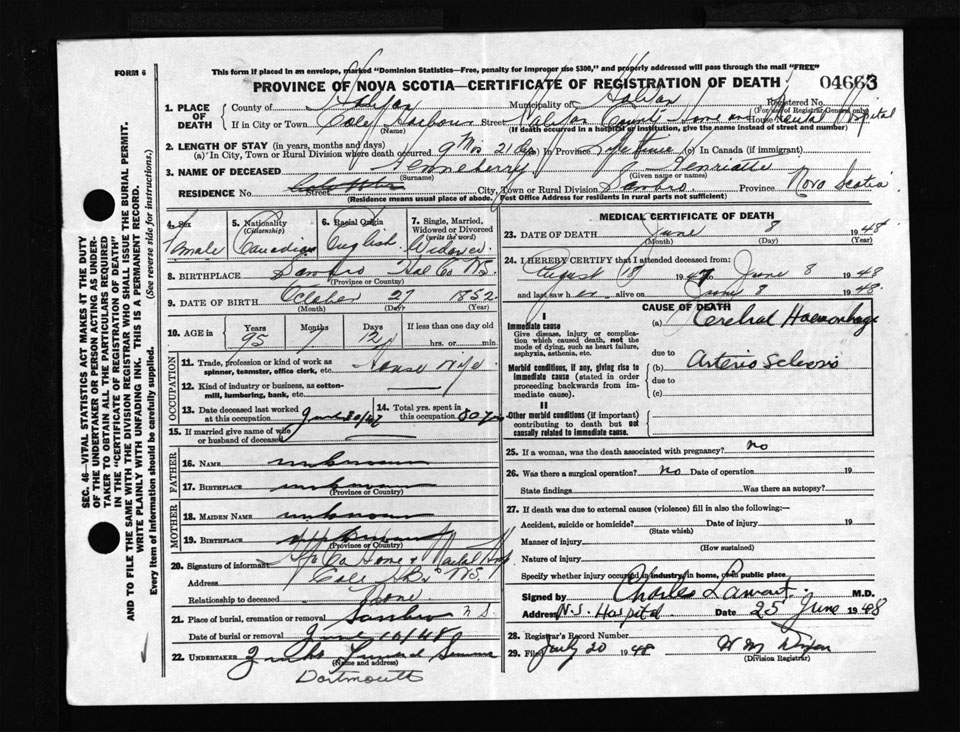 FORM 6
This form if placed in an envelope, marked "Dominion Statistics—Free, penalty for improper use $300," and properly addressed will pass through the mail "FREE"
PROVINCE OF NOVA SCOTIA—CERTIFICATE OF REGISTRATION OF DEATH
04663
SEC. 46—VITAL STATISTICS ACT MAKES IT THE DUTY
OF THE UNDERTAKER OR PERSON ACTING AS UNDER-
TAKER TO OBTAIN ALL THE PARTICULARS REQUIRED
IN THE "CERTIFICATE OF REGISTRATION OF DEATH"
AND TO FILE THE SAME WITH THE DIVISION REGISTRAR WHO SHALL ISSUE THE BURIAL PERMIT.
WRITE PLAINLY WITH UNFADING INK. THIS IS A PERMANENT RECORD.
Every item of information should be carefully supplied. (See reverse side for instructions.)
1. PLACE OF DEATH County of Halifax Municipality of Halifax Registered No.
(For use of Registrar General only)
If in City or Town Cole Harbour Street Halifax County Home and Mental Hospital House
(Name) (If death occurred in a hospital or institution, give the name instead of street and number)
2. LENGTH OF STAY (in years, months and days)
(a) In City, Town or Rural Division where death occurred 9 Mos 21 days In Province Life time (c) In Canada (if immigrant)
3. NAME OF DECEASED Henneberry Henriatta
(Surname) (Given name or names)
RESIDENCE No. Street City, Town or Rural Division Sambro Province Nova Scotia
(Residence means usual place of abode. Post Office Address for residents in rural parts not sufficient)
4. Sex Female
5. Nationality (Citizenship) Canadian
6. Racial Origin English
7. Single, Married, Widowed or Divorced (write the word) Widower
8. BIRTHPLACE Sambro Hal Co N.S.
(Province or Country)
9. DATE OF BIRTH October 27 1852
(Month) (Day) (Year)
10. AGE in Years 95 Months 7 Days 12 If less than one day old
hrs. or min.
OCCUPATION
11. Trade, profession or kind of work as spinner, teamster, office clerk, etc. House Wife
12. Kind of industry or business, as cotton-mill, lumbering, bank, etc.
13. Date deceased last worked at this occupation
14. Total yrs. spent in this occupation 80 yrs
15. If married give name of wife or husband of deceased
FATHER
16. NAME unknown
17. BIRTHPLACE unknown
(Province or Country)
MOTHER
18. MAIDEN NAME unknown
19. BIRTHPLACE unknown
(Province or Country)
20. Signature of informant Hfx Co Home & Mental Hosp
Address Cole Hbr N.S.
Relationship to deceased None
21. Place of burial, cremation or removal Sambro N.S.
Date of burial or removal June 10/48
22. UNDERTAKER Funeral Service
(Name and address)
Dartmouth
MEDICAL CERTIFICATE OF DEATH
23. DATE OF DEATH June 8 1948
(Month) (Day) (Year)
24. I HEREBY CERTIFY that I attended deceased from:
August 18 1947 to June 8 1948
and last saw her alive on June 8 1948
CAUSE OF DEATH
I
Immediate cause
Give disease, injury or complication which caused death, not the mode of dying, such as heart failure, asphyxia, asthenia, etc.
(a) Cerebral Haemorrhage
due to
Morbid conditions, if any, giving rise to immediate cause (stated in order proceeding backwards from immediate cause).
(b) Arterio Sclerosis
due to
(c)
II
Other morbid conditions (if important) contributing to death but not causally related to immediate cause.
25. If a woman, was the death associated with pregnancy? No
26. Was there a surgical operation? No Date of operation 19
State findings Was there an autopsy?
27. If death was due to external causes (violence) fill in also the following:—
Accident, suicide or homicide? Date of injury 19
(State which)
Manner of injury
(How sustained)
Nature of injury
Specify whether injury occurred in industry, in home, or in public place
Signed by Charles Lamont M.D.
Address N.S. Hospital Date 25 June 1948
28. Registrar's Record Number
29. Filed July 20 1948
(Division Registrar)